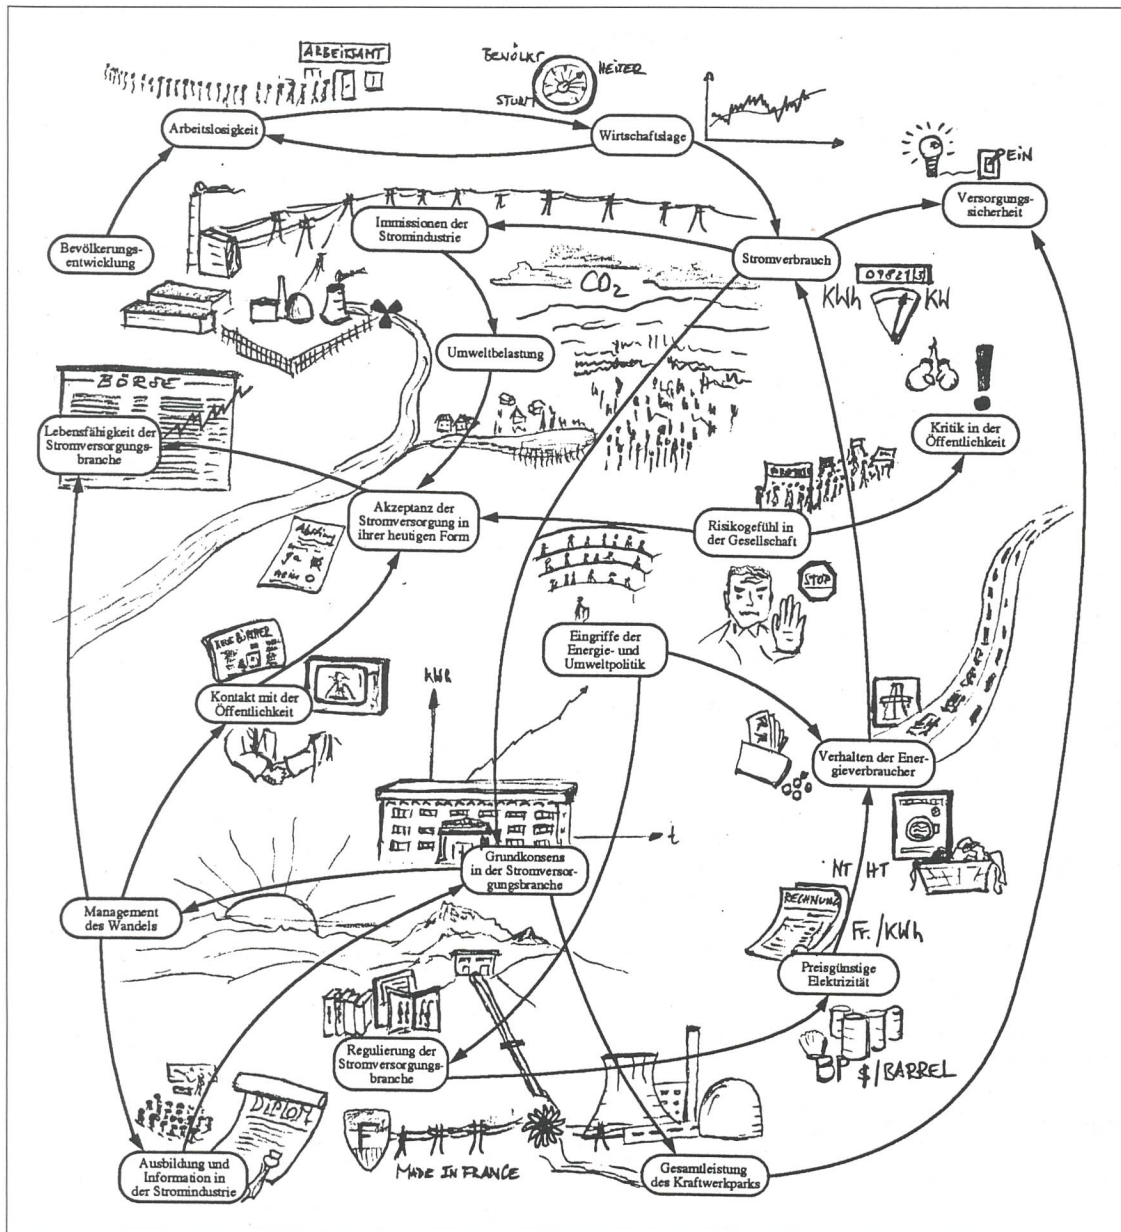 ARBEITSAMT
BEWÖLKT
HEITER
STURM
Arbeitslosigkeit
Wirtschaftslage
EIN
Versorgungs-
sicherheit
Immissionen der
Stromindustrie
Bevölkerungs-
entwicklung
Stromverbrauch
CO2
KWh
KW
Umweltbelastung
BÖRSE
Lebensfähigkeit der
Stromversorgungs-
branche
Kritik in der
Öffentlichkeit
Akzeptanz der
Stromversorgung in
ihrer heutigen Form
Risikogefühl in
der Gesellschaft
STOP
Eingriffe der
Energie- und
Umweltpolitik
Kontakt mit der
Öffentlichkeit
KWh
Verhalten der Ener-
gieverbraucher
t
Grundkonsens
in der Stromversor-
gungsbranche
NT HT
Management
des Wandels
RECHNUNG
Fr./KWh
Preisgünstige
Elektrizität
Regulierung der
Stromversorgungs-
branche
BP $/BARREL
DIPLOM
F
MADE IN FRANCE
Ausbildung und
Information in
der Stromindustrie
Gesamtleistung
des Kraftwerkparks